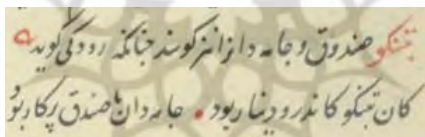 تبنکو صندوق و جامه دانرا نیز کویند چنانکه رودکی کوید
کان تبنکو کاندرو دینار بود • جامه دان یا صندق پرکار بود